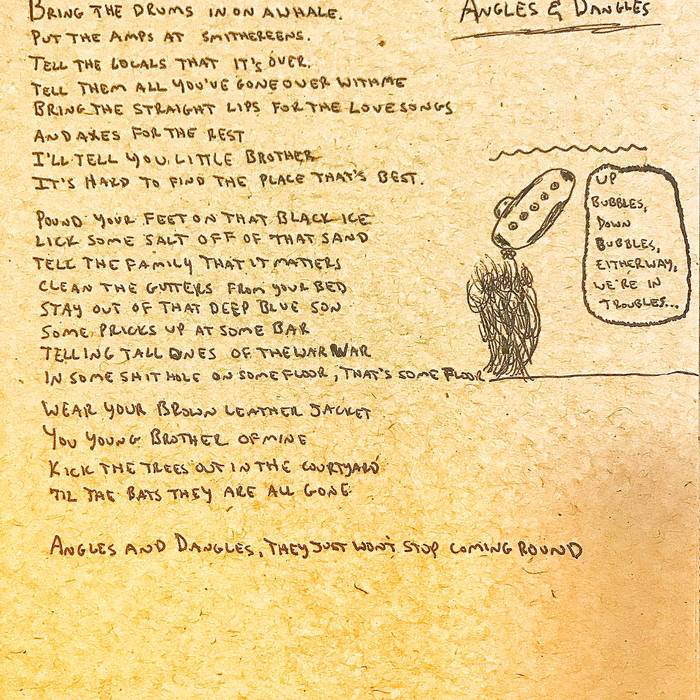 ANGLES & DANGLES
BRING THE DRUMS IN ON A WHALE.
PUT THE AMPS AT SMITHEREENS.
TELL THE LOCALS THAT IT'S OVER.
TELL THEM ALL YOU'VE GONE OVER WITH ME
BRING THE STRAIGHT LIPS FOR THE LOVESONGS
AND AXES FOR THE REST
I'LL TELL YOU LITTLE BROTHER
IT'S HARD TO FIND THE PLACE THAT'S BEST.
POUND YOUR FEET ON THAT BLACK ICE
LICK SOME SALT OFF OF THAT SAND
TELL THE FAMILY THAT IT MATTERS
CLEAN THE GUTTERS FROM YOUR BED
STAY OUT OF THAT DEEP BLUE SON
SOME PRICKS UP AT SOME BAR
TELLING TALL ONES OF THE WAR WAR
IN SOME SHIT HOLE ON SOME FLOOR, THAT'S SOME FLOOR
WEAR YOUR BROWN LEATHER JACKET
YOU YOUNG BROTHER OF MINE
KICK THE TREES OUT IN THE COURTYARD
'TIL THE BATS THEY ARE ALL GONE
ANGLES AND DANGLES, THEY JUST WON'T STOP COMING ROUND
UP
BUBBLES,
DOWN
BUBBLES,
EITHERWAY,
WE'RE IN
TROUBLES...